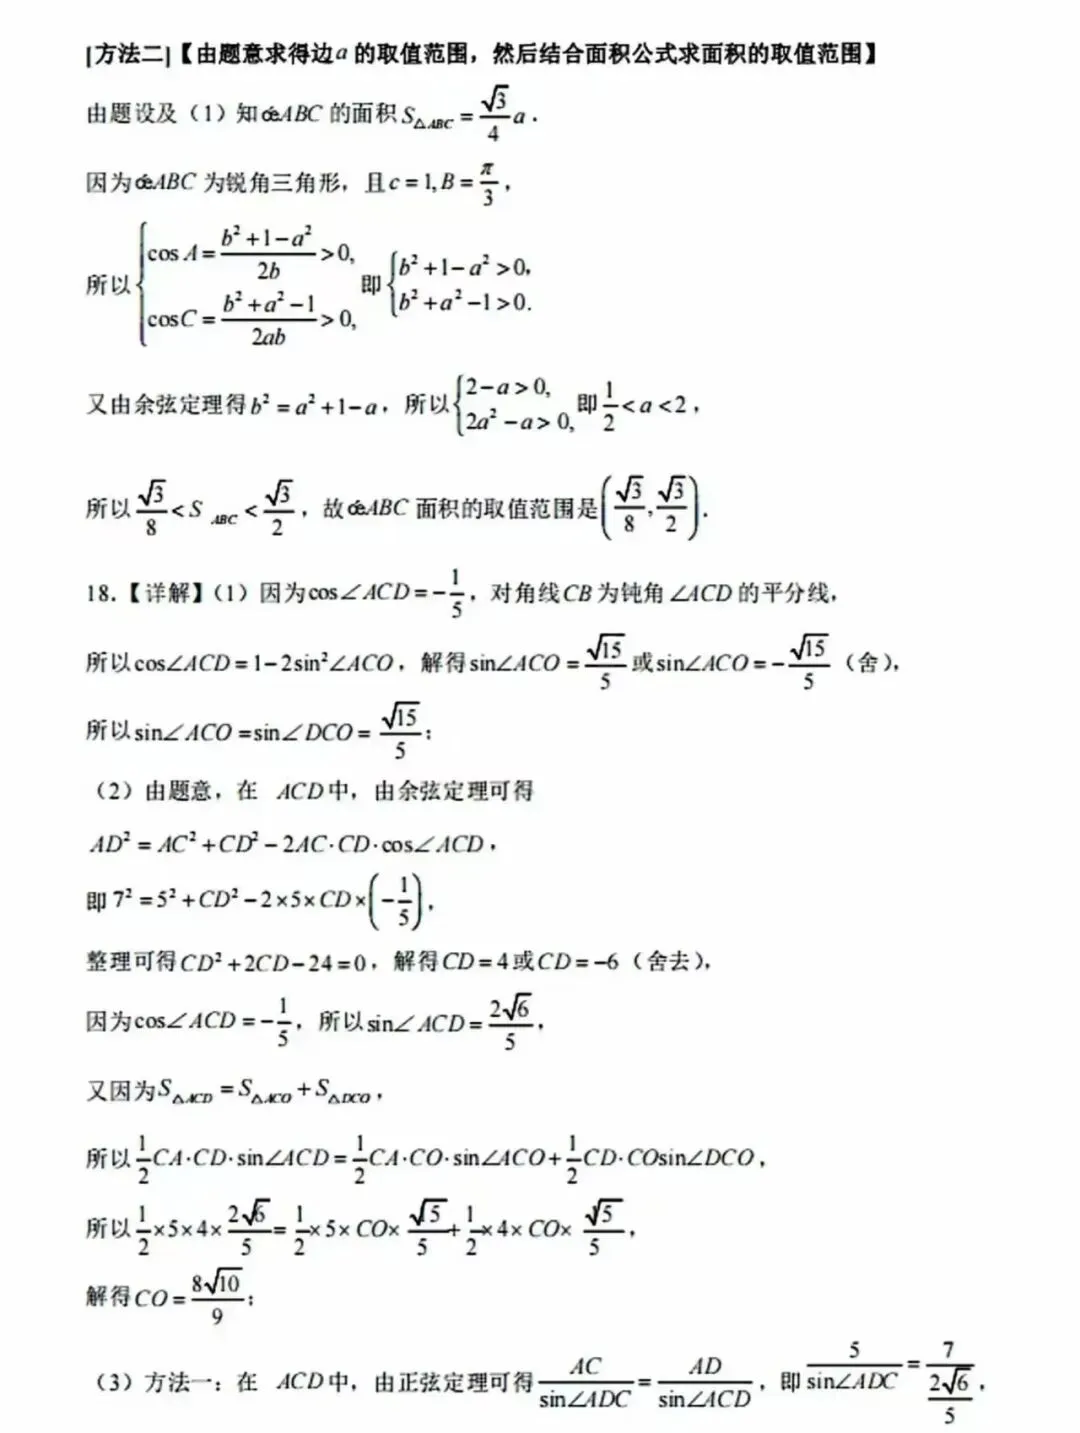 [方法二]【由题意求得边a 的取值范围，然后结合面积公式求面积的取值范围】
由题设及（1）知ǿABC 的面积 S△ABC = √3/4 a．
因为ǿABC 为锐角三角形，且 c = 1, B = π/3，
所以 { cos A = (b² + 1 − a²)/(2b) > 0, cosC = (b² + a² − 1)/(2ab) > 0, 即 { b² + 1 − a² > 0, b² + a² − 1 > 0.
又由余弦定理得 b² = a² + 1 − a，所以 { 2 − a > 0, 2a² − a > 0, 即 1/2 < a < 2，
所以 √3/8 < S ABC < √3/2，故ǿABC 面积的取值范围是 (√3/8, √3/2)．
18.【详解】（1）因为 cos∠ACD = −1/5，对角线 CB 为钝角 ∠ACD 的平分线，
所以 cos∠ACD = 1 − 2sin²∠ACO，解得 sin∠ACO = √15/5 或 sin∠ACO = −√15/5（舍），
所以 sin∠ACO = sin∠DCO = √15/5；
（2）由题意，在 ACD 中，由余弦定理可得
AD² = AC² + CD² − 2AC·CD·cos∠ACD，
即 7² = 5² + CD² − 2×5×CD×(−1/5)，
整理可得 CD² + 2CD − 24 = 0，解得 CD = 4 或 CD = −6（舍去），
因为 cos∠ACD = −1/5，所以 sin∠ACD = 2√6/5，
又因为 S△ACD = S△ACO + S△DCO，
所以 1/2 CA·CD·sin∠ACD = 1/2 CA·CO·sin∠ACO + 1/2 CD·COsin∠DCO，
所以 1/2×5×4×2√6/5 = 1/2×5×CO×√15/5 + 1/2×4×CO×√15/5，
解得 CO = 8√10/9；
（3）方法一：在 ACD 中，由正弦定理可得 AC/sin∠ADC = AD/sin∠ACD，即 5/sin∠ADC = 7/(2√6/5)，